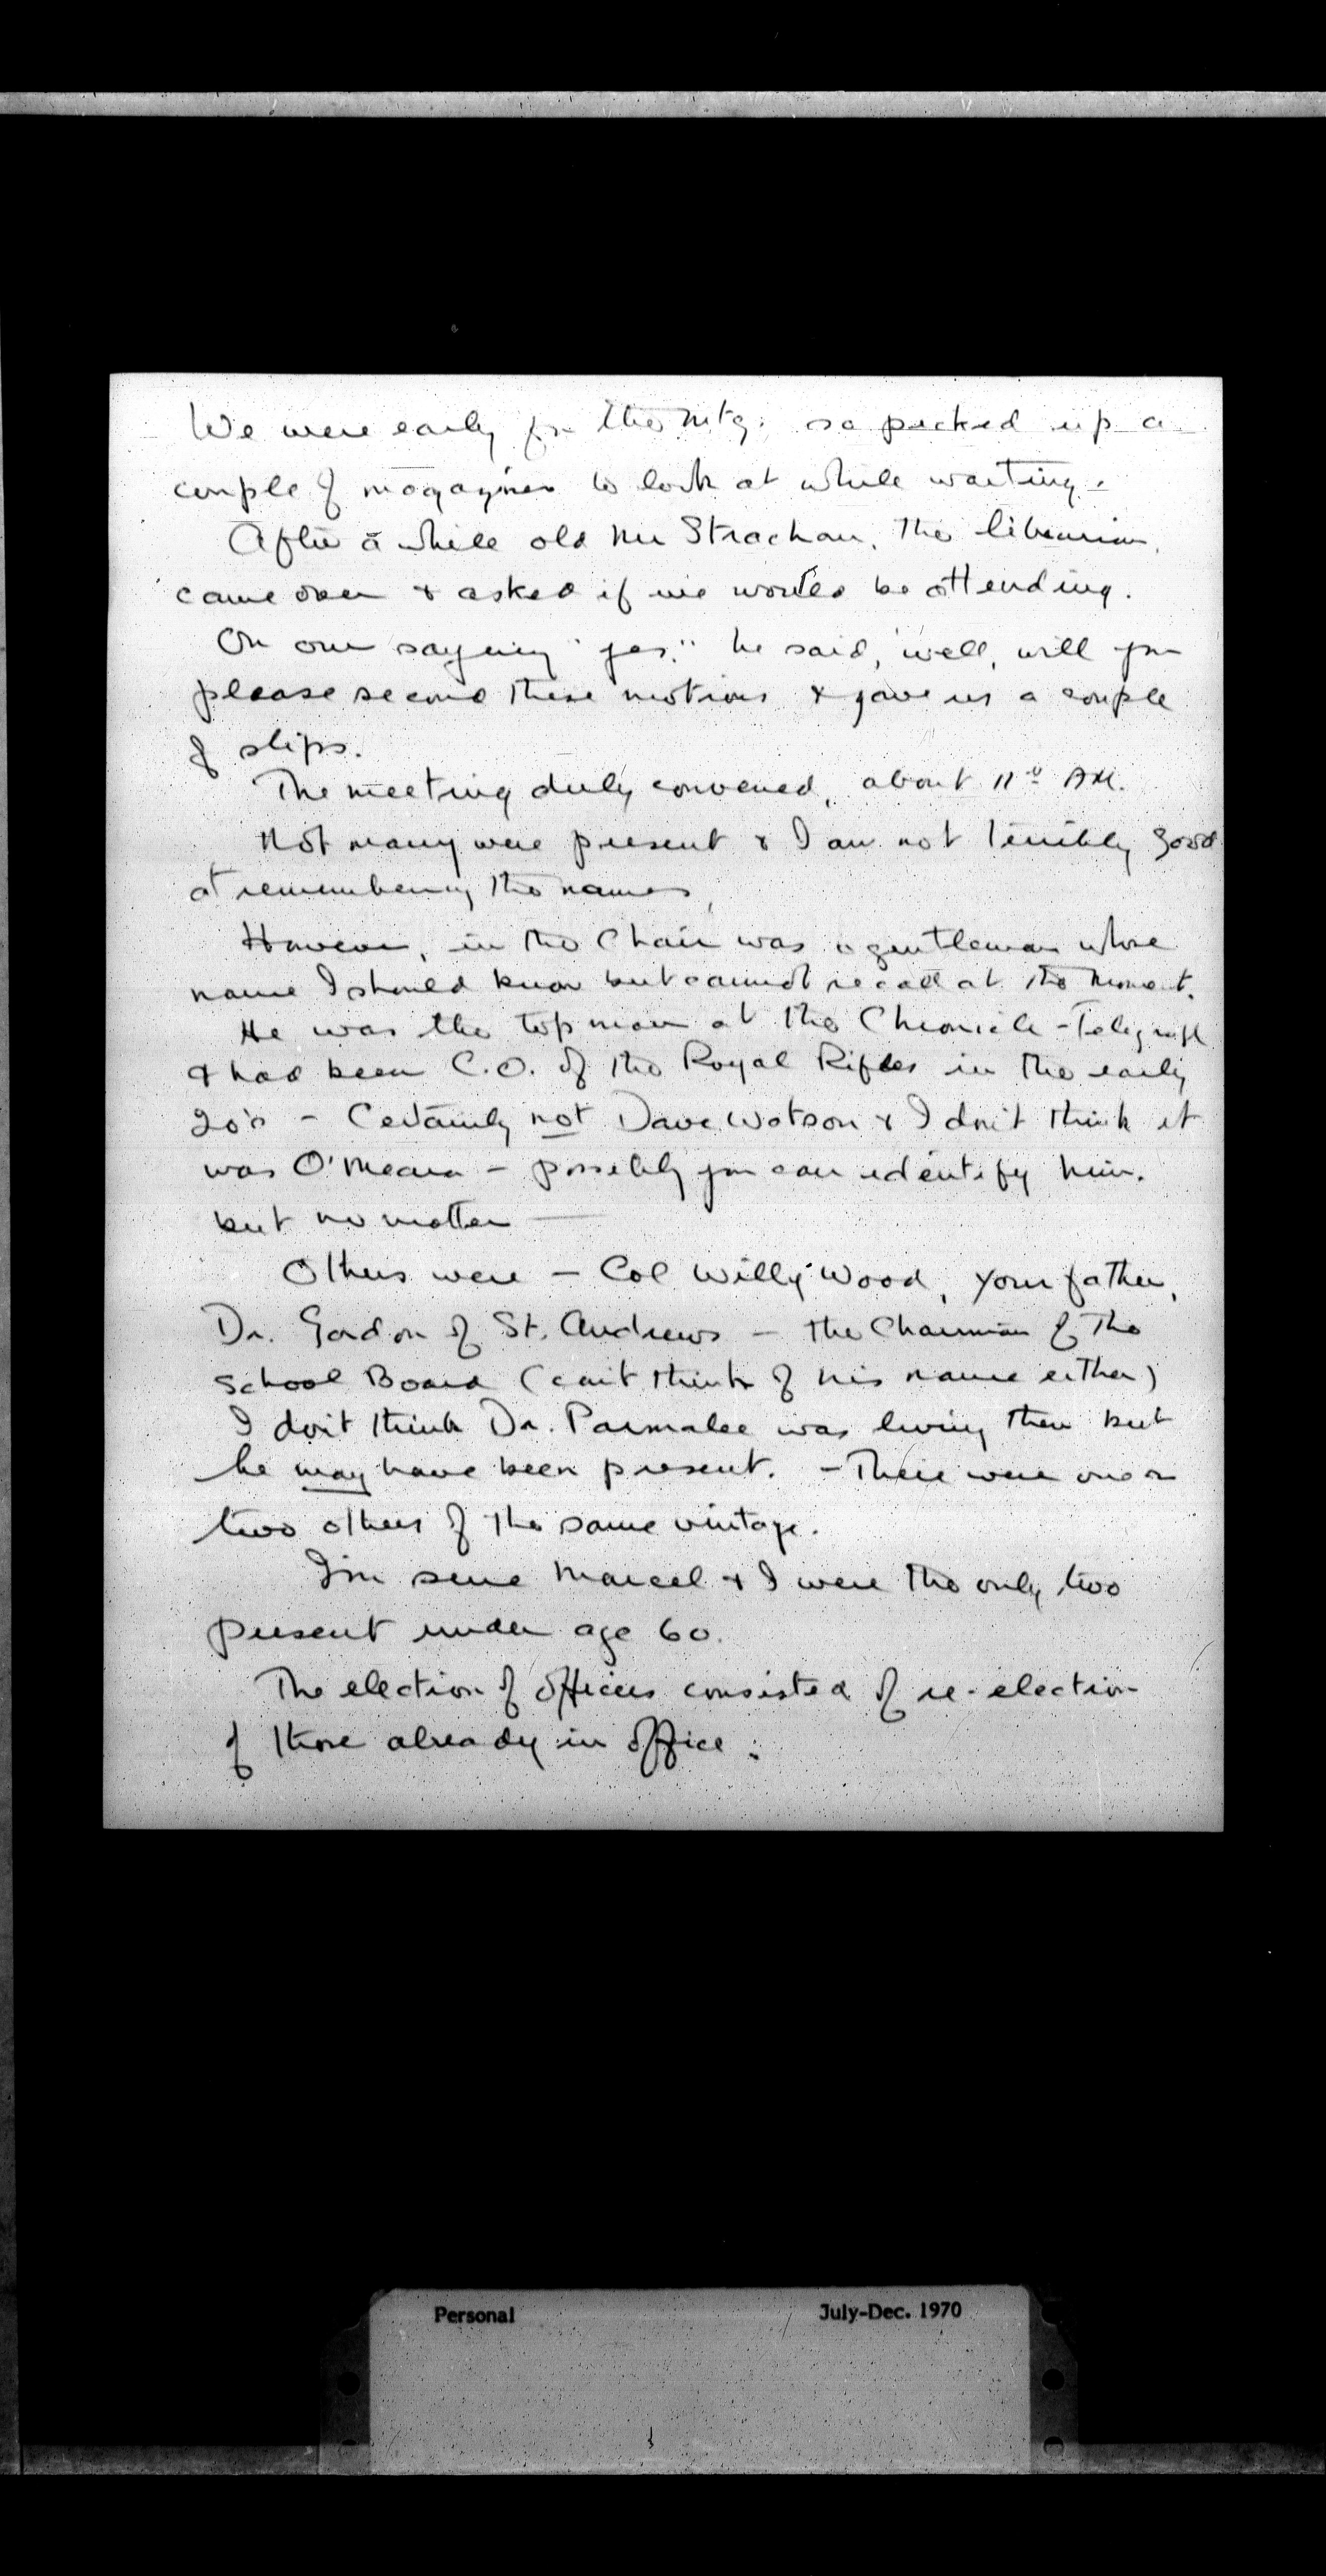 We were early for the mtg: so picked up a
couple of magazines to look at while waiting.
After a while old Mr Strachan, the librarian,
came over & asked if we would be attending.
On our saying "yes" he said, well, will you
please second these motions & gave us a couple
of slips.
The meeting duly convened, about 11º AM.
Not many were present & I am not terribly good
at remembering the names,
However, in the Chair was a gentleman whose
name I should know but cannot recall at the moment.
He was the top man at the Chronicle-Telegraph
& had been C.O. of the Royal Rifles in the early
20's - Certainly not Dave Watson & I don't think it
was O'Meara - possibly you can identify him.
but no matter —
Others were - Col Willy Wood, your father,
Dr. Gordon of St. Andrews - the Chairman of the
School Board (can't think of his name either)
I don't think Dr. Parmalee was living then but
he may have been present. - There were one or
two others of the same vintage.
I'm sure Marcel & I were the only two
present under age 60.
The election of officers consisted of re-election
of those already in office.
Personal July-Dec. 1970